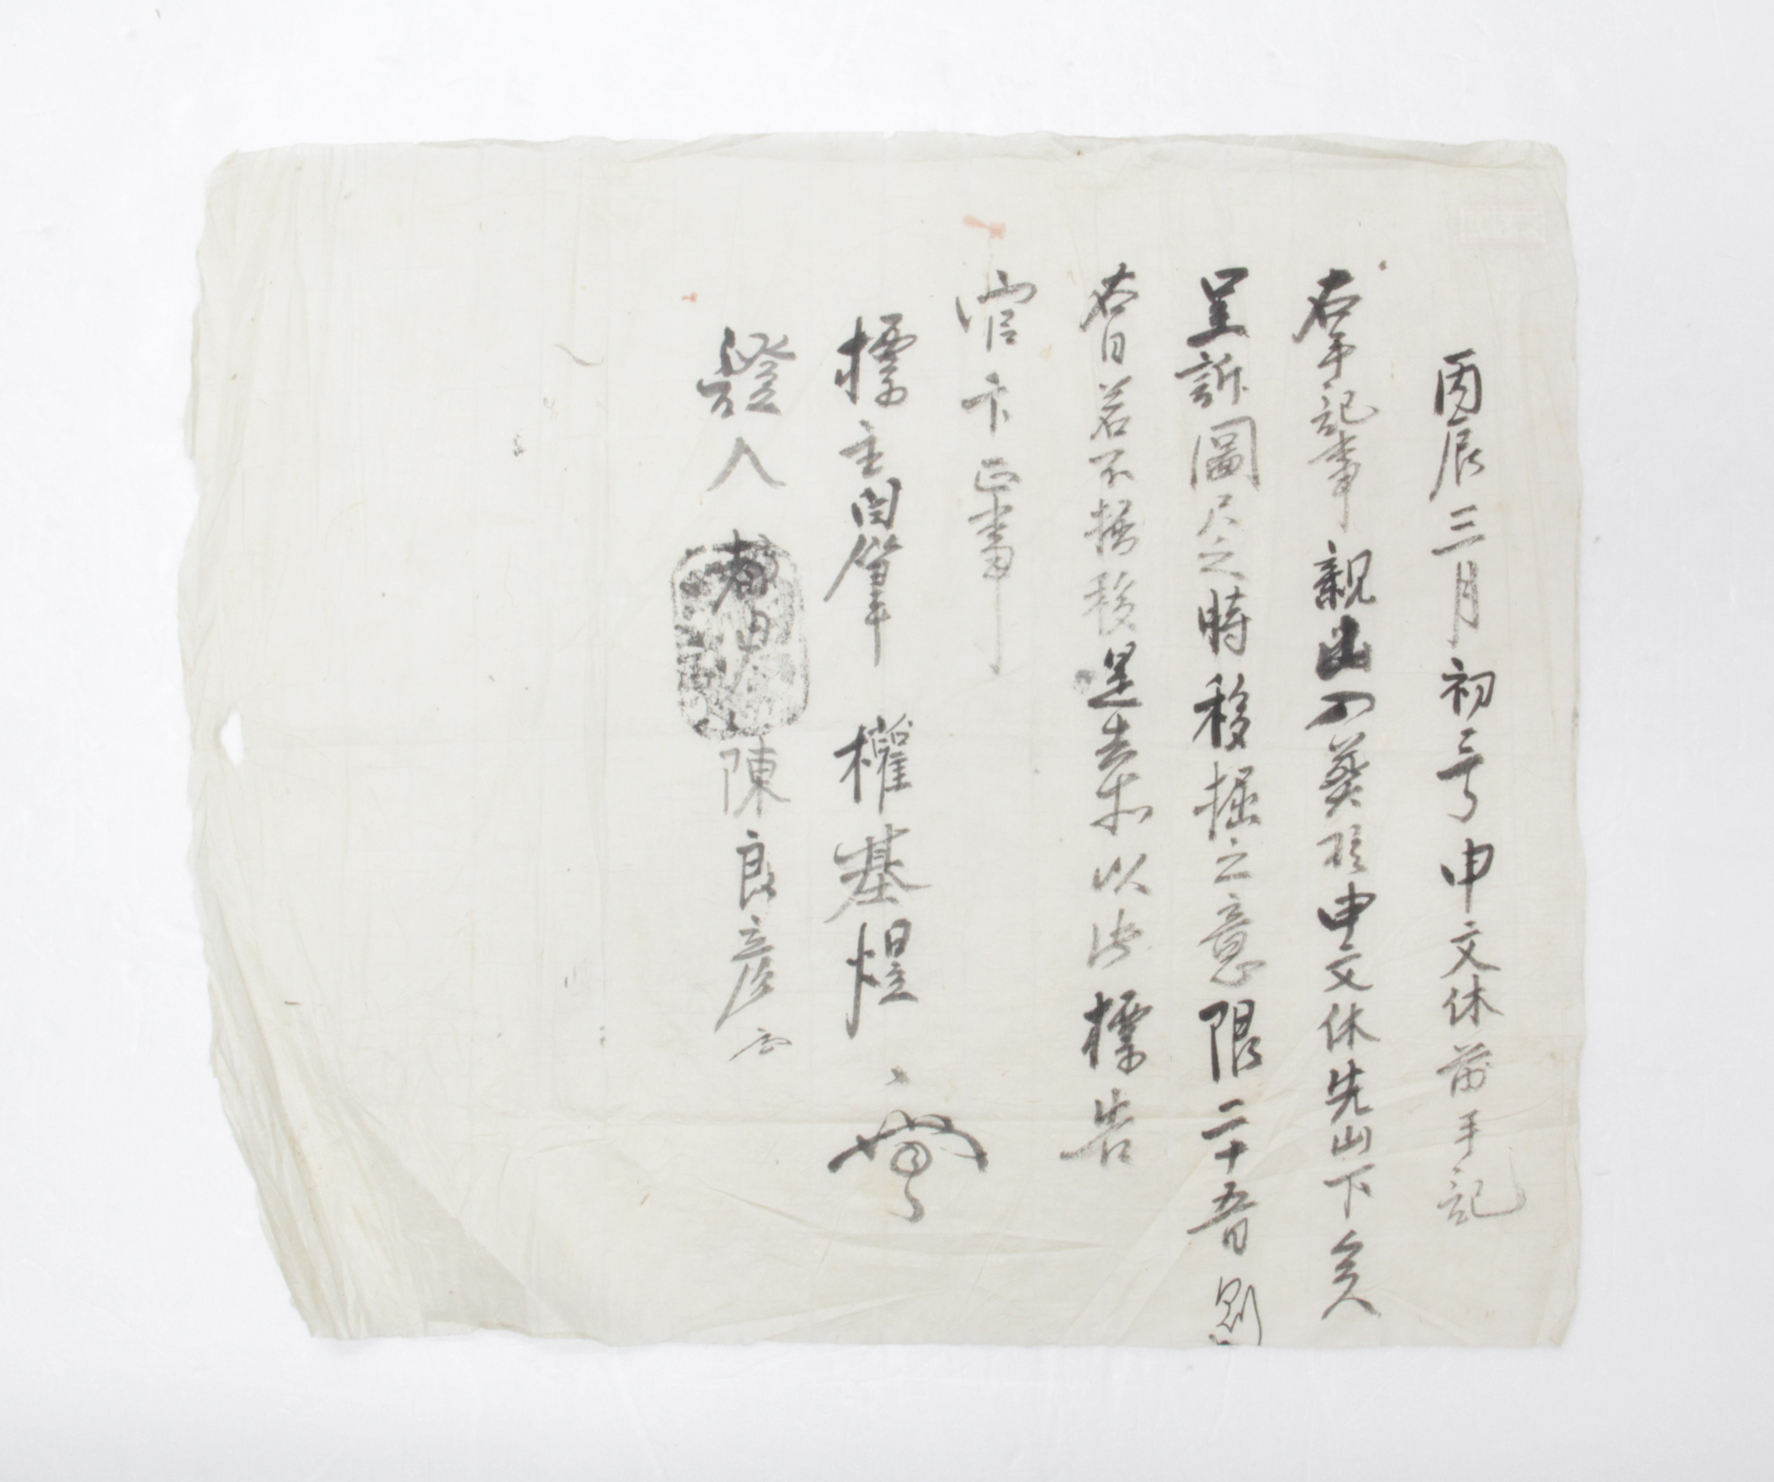 丙辰三月初三日 申文休前手記
右手記事 親山入葬於申文休先山下矣
呈訴圖尺之時移掘之意限二十五日則
當日若不掘移是去乃以此標告
官卞正事
標主自筆 權基煜
證人 春陽 陳良彦